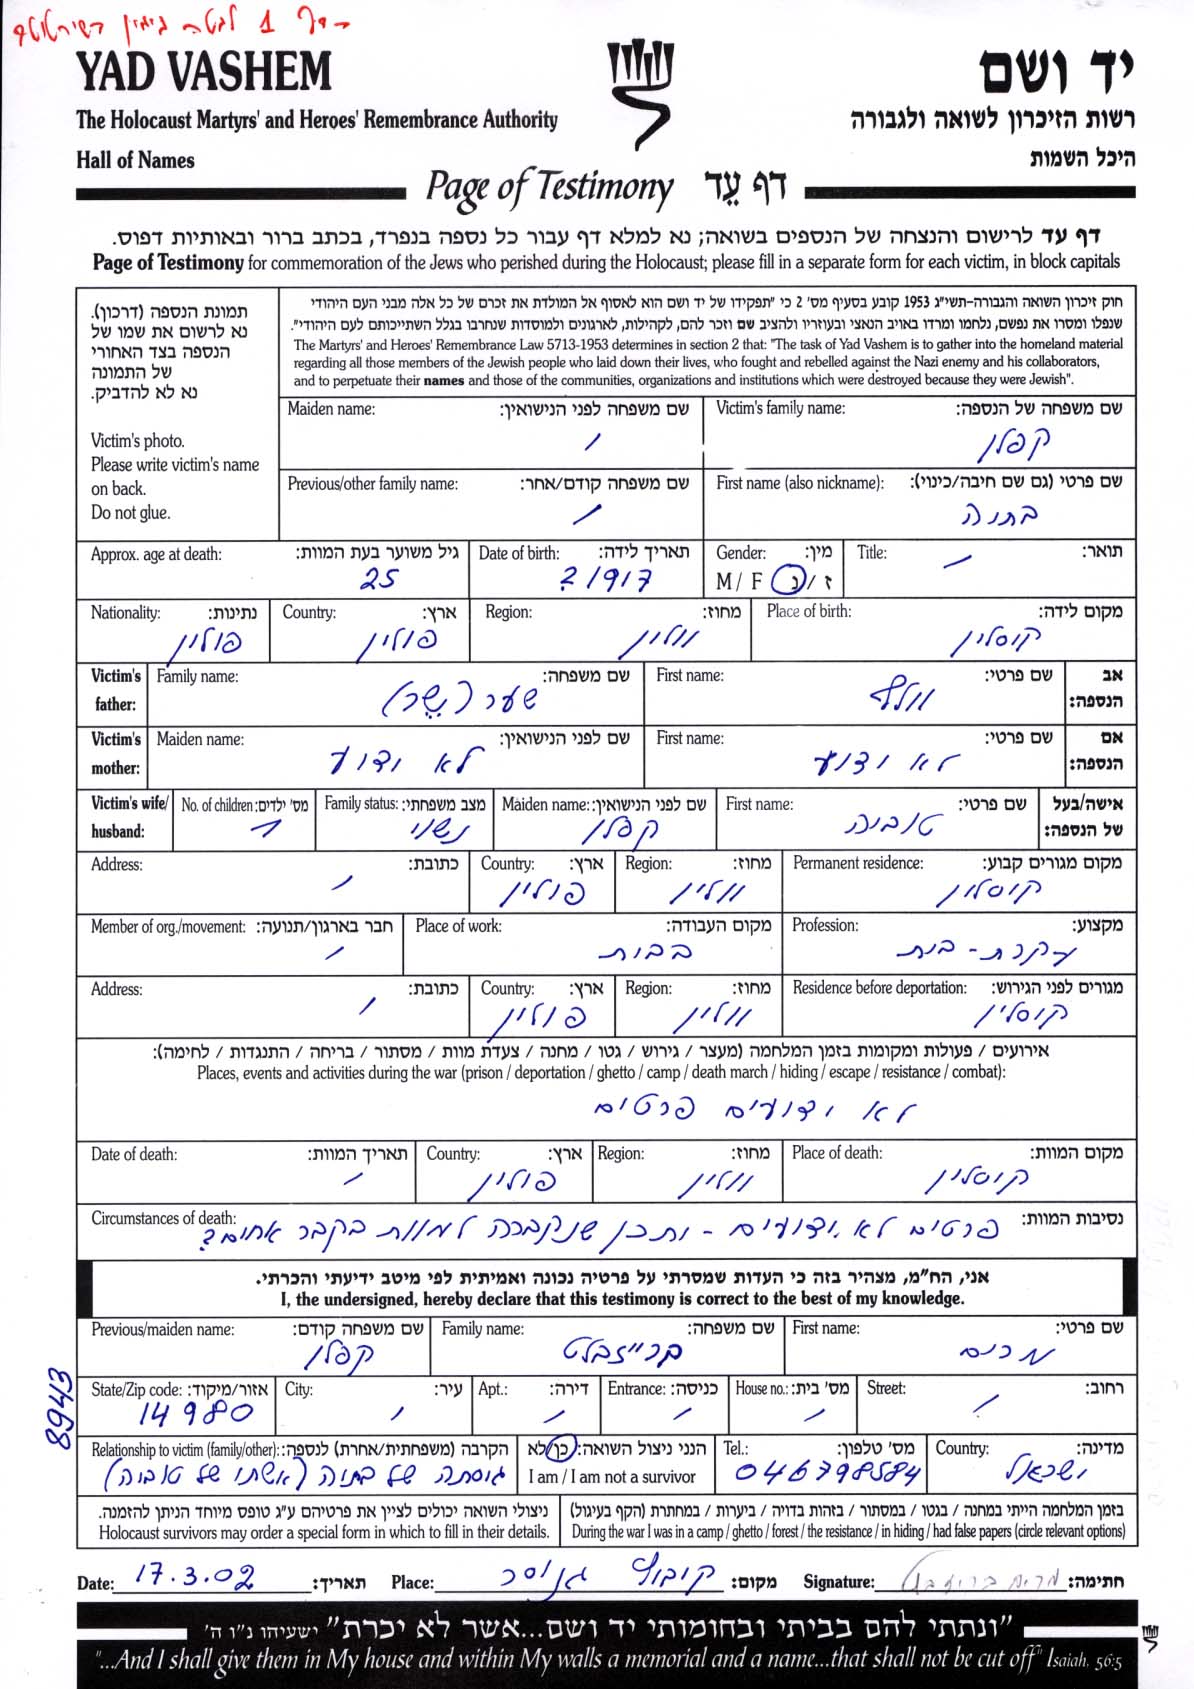 דף 1 לגטה בימין השירטוט
YAD VASHEM
יד ושם
The Holocaust Martyrs' and Heroes' Remembrance Authority
רשות הזיכרון לשואה ולגבורה
Hall of Names
היכל השמות
Page of Testimony דף עֵד
דף עד לרישום והנצחה של הנספים בשואה; נא למלא דף עבור כל נספה בנפרד, בכתב ברור ובאותיות דפוס.
Page of Testimony for commemoration of the Jews who perished during the Holocaust; please fill in a separate form for each victim, in block capitals
תמונת הנספה (דרכון).
נא לרשום את שמו של
הנספה בצד האחורי
של התמונה
נא לא להדביק.
Victim's photo.
Please write victim's name
on back.
Do not glue.
חוק זיכרון השואה והגבורה-תשי"ג 1953 קובע בסעיף מס' 2 כי "תפקידו של יד ושם הוא לאסוף אל המולדת את זכרם של כל אלה מבני העם היהודי
שנפלו ומסרו את נפשם, נלחמו ומרדו באויב הנאצי ובעוזריו ולהציב שם וזכר להם, לקהילות, לארגונים ולמוסדות שנחרבו בגלל השתייכותם לעם היהודי".
The Martyrs' and Heroes' Remembrance Law 5713-1953 determines in section 2 that: "The task of Yad Vashem is to gather into the homeland material
regarding all those members of the Jewish people who laid down their lives, who fought and rebelled against the Nazi enemy and his collaborators,
and to perpetuate their names and those of the communities, organizations and institutions which were destroyed because they were Jewish".
Maiden name: שם משפחה לפני הנישואין: Victim's family name: שם משפחה של הנספה:
/ קפלן
Previous/other family name: שם משפחה קודם/אחר: First name (also nickname): שם פרטי (גם שם חיבה/כינוי):
/ בתיה
Approx. age at death: גיל משוער בעת המוות: Date of birth: תאריך לידה: Gender: מין: Title: תואר:
25 1917 ? M / F ז / נ /
Nationality: נתינות: Country: ארץ: Region: מחוז: Place of birth: מקום לידה:
פולין פולין וולין קוסלין
Victim's father: Family name: שם משפחה: First name: שם פרטי: אב הנספה:
שער (שֶׁר) וולף
Victim's mother: Maiden name: שם לפני הנישואין: First name: שם פרטי: אם הנספה:
לא ידוע לא ידוע
Victim's wife/ husband: No. of children: מס' ילדים: Family status: מצב משפחתי: Maiden name: שם לפני הנישואין: First name: שם פרטי: אישה/בעל של הנספה:
1 נשוי קפלן טוביה
Address: כתובת: Country: ארץ: Region: מחוז: Permanent residence: מקום מגורים קבוע:
/ פולין וולין קוסלין
Member of org./movement: חבר בארגון/תנועה: Place of work: מקום העבודה: Profession: מקצוע:
/ בבית עקרת-בית
Address: כתובת: Country: ארץ: Region: מחוז: Residence before deportation: מגורים לפני הגירוש:
/ פולין וולין קוסלין
אירועים / פעולות ומקומות בזמן המלחמה (מעצר / גירוש / גטו / מחנה / צעדת מוות / מסתור / בריחה / התנגדות / לחימה):
Places, events and activities during the war (prison / deportation / ghetto / camp / death march / hiding / escape / resistance / combat):
לא ידועים פרטים
Date of death: תאריך המוות: Country: ארץ: Region: מחוז: Place of death: מקום המוות:
/ פולין וולין קוסלין
Circumstances of death: נסיבות המוות:
פרטים לא ידועים - יתכן שנקברה למוות בקבר אחים?
אני, הח"מ, מצהיר בזה כי העדות שמסרתי על פרטיה נכונה ואמיתית לפי מיטב ידיעתי והכרתי.
I, the undersigned, hereby declare that this testimony is correct to the best of my knowledge.
Previous/maiden name: שם משפחה קודם: Family name: שם משפחה: First name: שם פרטי:
קפלן ברייזבלט מרים
State/Zip code: אזור/מיקוד: City: עיר: Apt.: דירה: Entrance: כניסה: House no.: מס' בית: Street: רחוב:
14980 / / / / /
8943
Relationship to victim (family/other): הקרבה (משפחתית/אחרת) לנספה: הנני ניצול השואה: כן/לא Tel.: מס' טלפון: Country: מדינה:
גיסתה של בתיה (אשתו של טוביה) I am / I am not a survivor 046798584 ישראל
ניצולי השואה יכולים לציין את פרטיהם ע"ג טופס מיוחד הניתן להזמנה. בזמן המלחמה הייתי במחנה / בגטו / במסתור / בזהות בדויה / ביערות / במחתרת (הקף בעיגול)
Holocaust survivors may order a special form in which to fill in their details. During the war I was in a camp / ghetto / forest / the resistance / in hiding / had false papers (circle relevant options)
Date: 17.3.02 תאריך: Place: קיבוץ גנוסר מקום: Signature: חתימה:
"ונתתי להם בביתי ובחומותי יד ושם...אשר לא יכרת" ישעיהו נ"ו ה'
"...And I shall give them in My house and within My walls a memorial and a name...that shall not be cut off" Isaiah, 56:5